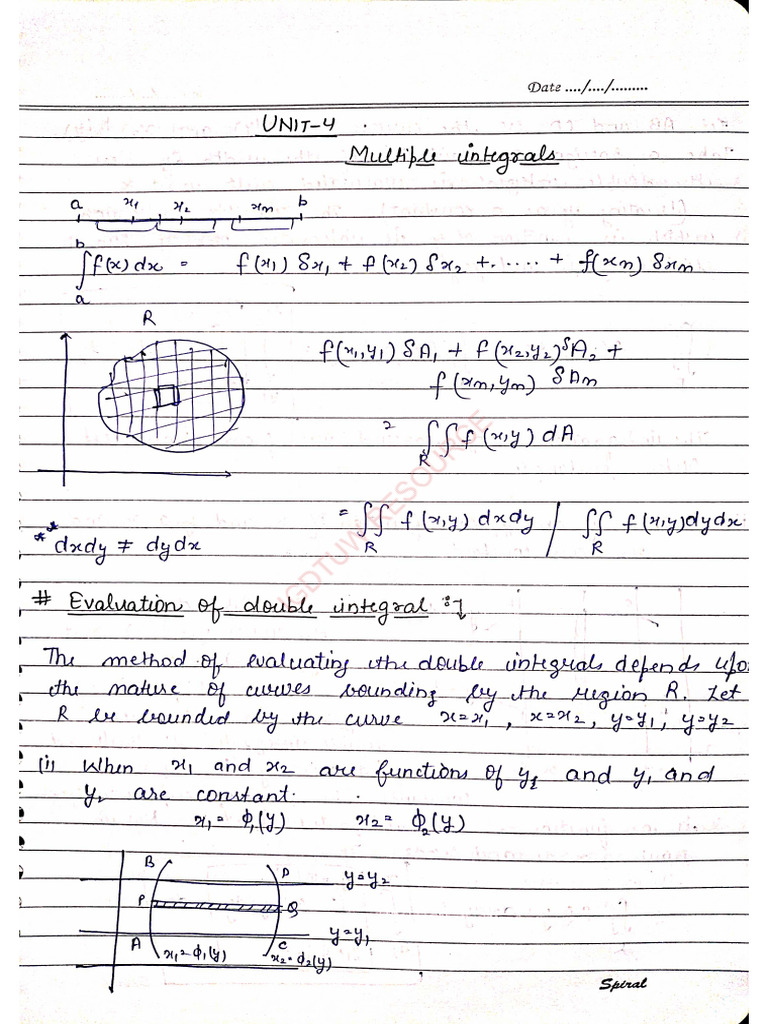 Date ..../..../.........
UNIT-4
Multiple integrals
a x₁ x₂ xₙ b
∫ₐᵇ f(x) dx = f(x₁) δx₁ + f(x₂) δx₂ +. .... + f(xₙ) δxₙ
R
f(x₁,y₁) δA₁ + f(x₂,y₂) δA₂ +
f(xₙ,yₙ) δAₙ
= ∬_R f(x,y) dA
= ∬_R f(x,y) dxdy / ∬_R f(x,y)dydx
** dxdy ≠ dydx
# Evaluation of double integral :↴
The method of evaluating the double integrals depends upon
the nature of curves bounding by the region R. Let
R be bounded by the curve x=x₁ , x=x₂, y=y₁, y=y₂
(i) When x₁ and x₂ are functions of y and y₁ and
y₂ are constant.
x₁= ϕ₁(y) x₂= ϕ₂(y)
B D y=y₂
P Q
A C y=y₁
x₁=ϕ₁(y) x₂=ϕ₂(y)
Spiral
IGDTUW RESOURCE